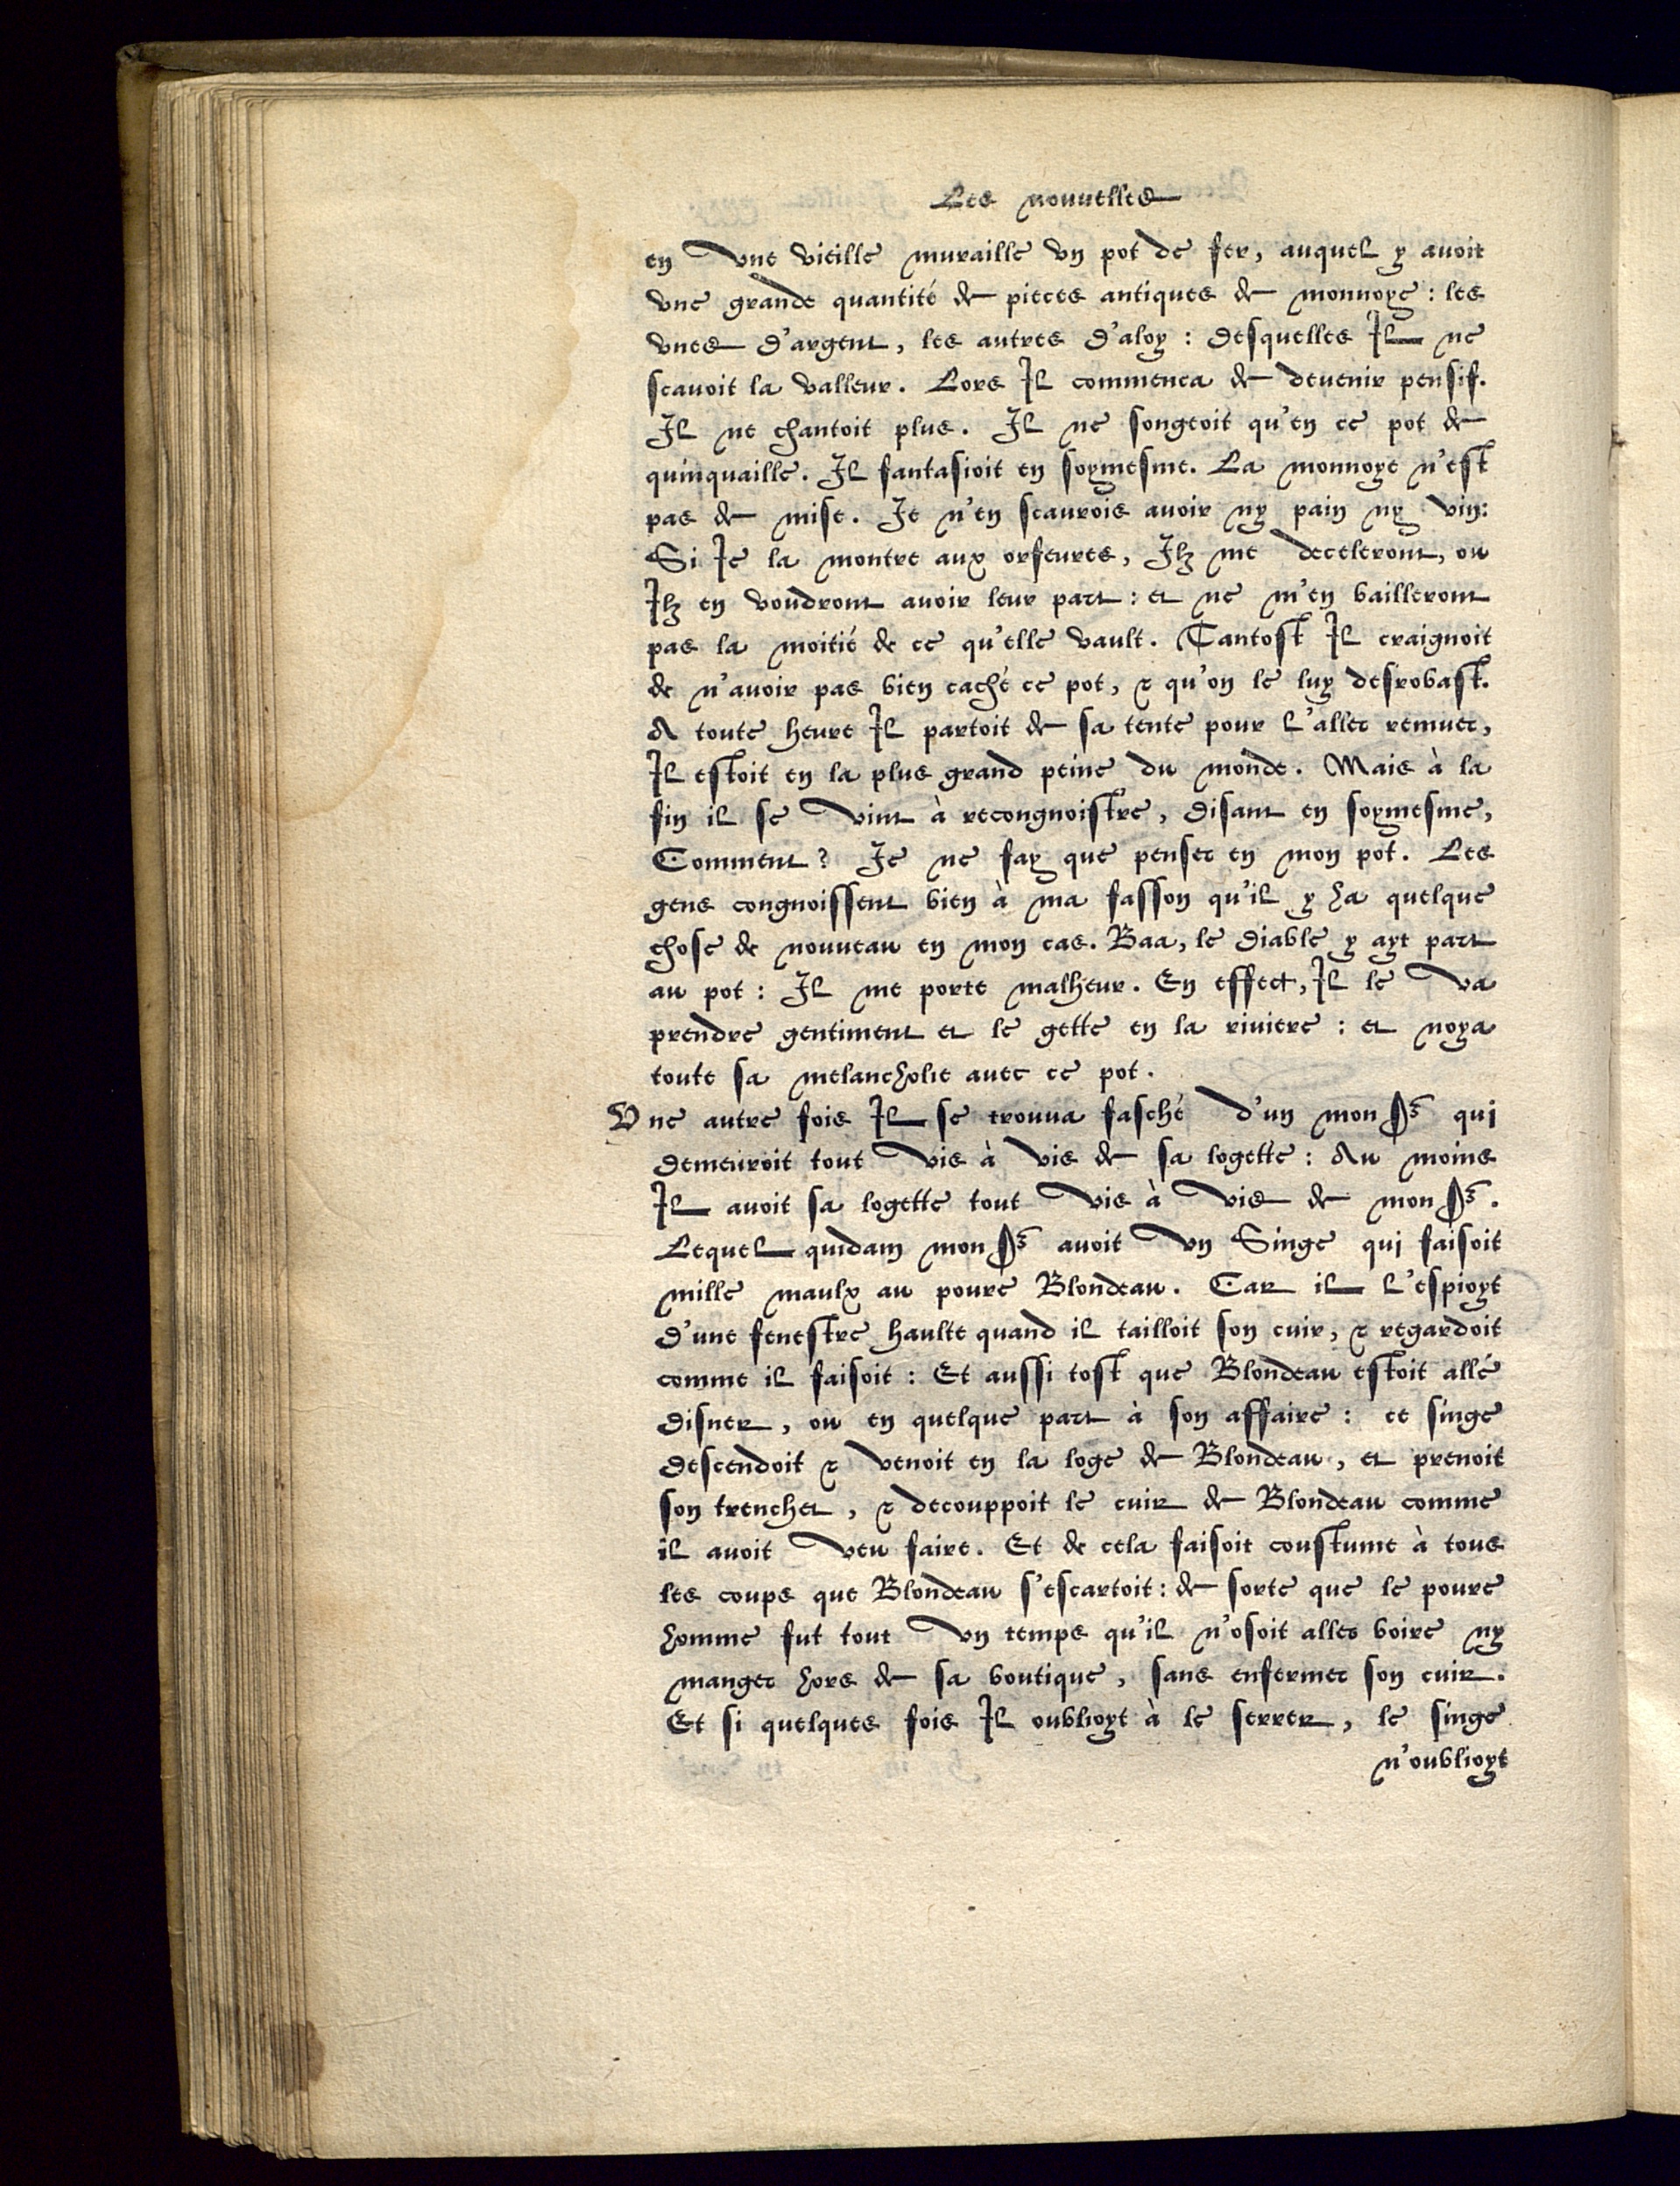 Les nouuelles
en vne vieille muraille vn pot de fer, auquel y auoit
vne grande quantité de pieces antiques de monnoye : les
vnes d'argent, les autres d'aloy : desquelles Il ne
scauoit la valleur. Lors Il commenca de deuenir pensif.
Il ne chantoit plus. Il ne songeoit qu'en ce pot de
quinquaille. Il fantasioit en soymesme. La monnoye n'est
pas de mise. Je n'en scaurois auoir ny pain ny vin:
Si Je la montre aux orfeures, Ilz me deceleront, ou
Ilz en voudront auoir leur part : et ne m'en bailleront
pas la moitié de ce qu'elle vault. Tantost Il craignoit
de n'auoir pas bien caché ce pot, & qu'on le luy desrobast.
A toute heure Il partoit de sa tente pour l'aller remuer,
Il estoit en la plus grand peine du monde. Mais à la
fin il se vint à recongnoistre, disant en soymesme,
Comment ? Je ne fay que penser en mon pot. Les
gens congnoissent bien à ma fasson qu'il y ha quelque
chose de nouueau en mon cas. Baa, le diable y ayt part
au pot : Il me porte malheur. En effect, Il le va
prendre gentiment et le gette en la riuiere : et noya
toute sa melancholie auec ce pot.
Vne autre fois Il se trouua fasché d'un monsr qui
demeuroit tout vis à vis de sa logette : Au moins
Il auoit sa logette tout vis à vis de monsr.
Lequel quidam monsr auoit vn Singe qui faisoit
mille maulx au poure Blondeau. Car il l'espioyt
d'une fenestre haulte quand il tailloit son cuir, & regardoit
comme il faisoit : Et aussi tost que Blondeau estoit allé
disner, ou en quelque part à son affaire : ce singe
descendoit & venoit en la loge de Blondeau, et prenoit
son trenchet, & decouppoit le cuir de Blondeau comme
il auoit veu faire. Et de cela faisoit coustume à tous
les coups que Blondeau s'escartoit : de sorte que le poure
homme fut tout vn temps qu'il n'osoit aller boire ny
manger hors de sa boutique, sans enfermer son cuir.
Et si quelques fois Il oublioyt à le serrer, le singe
n'oublioyt